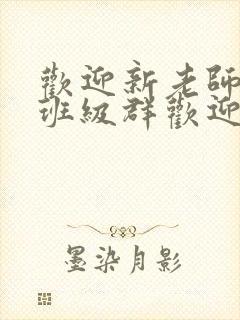 歡迎新老師
班級群歡迎
墨染月影